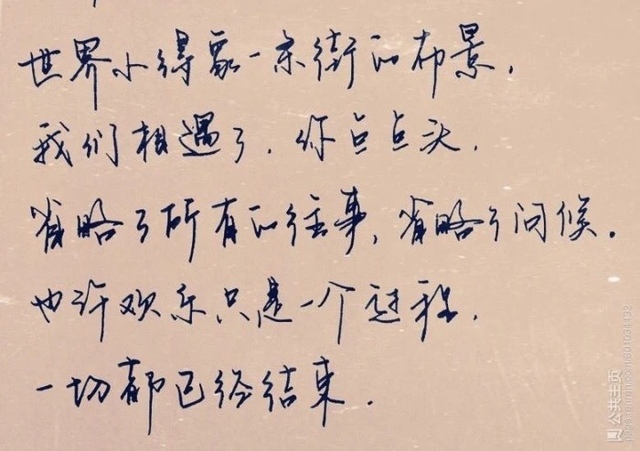 世界小得象一条街的布景，
我们相遇了．你点点头．
省略了所有的往事，省略了问候．
也许欢乐只是一个过程．
一切都已经结束．
公共主页